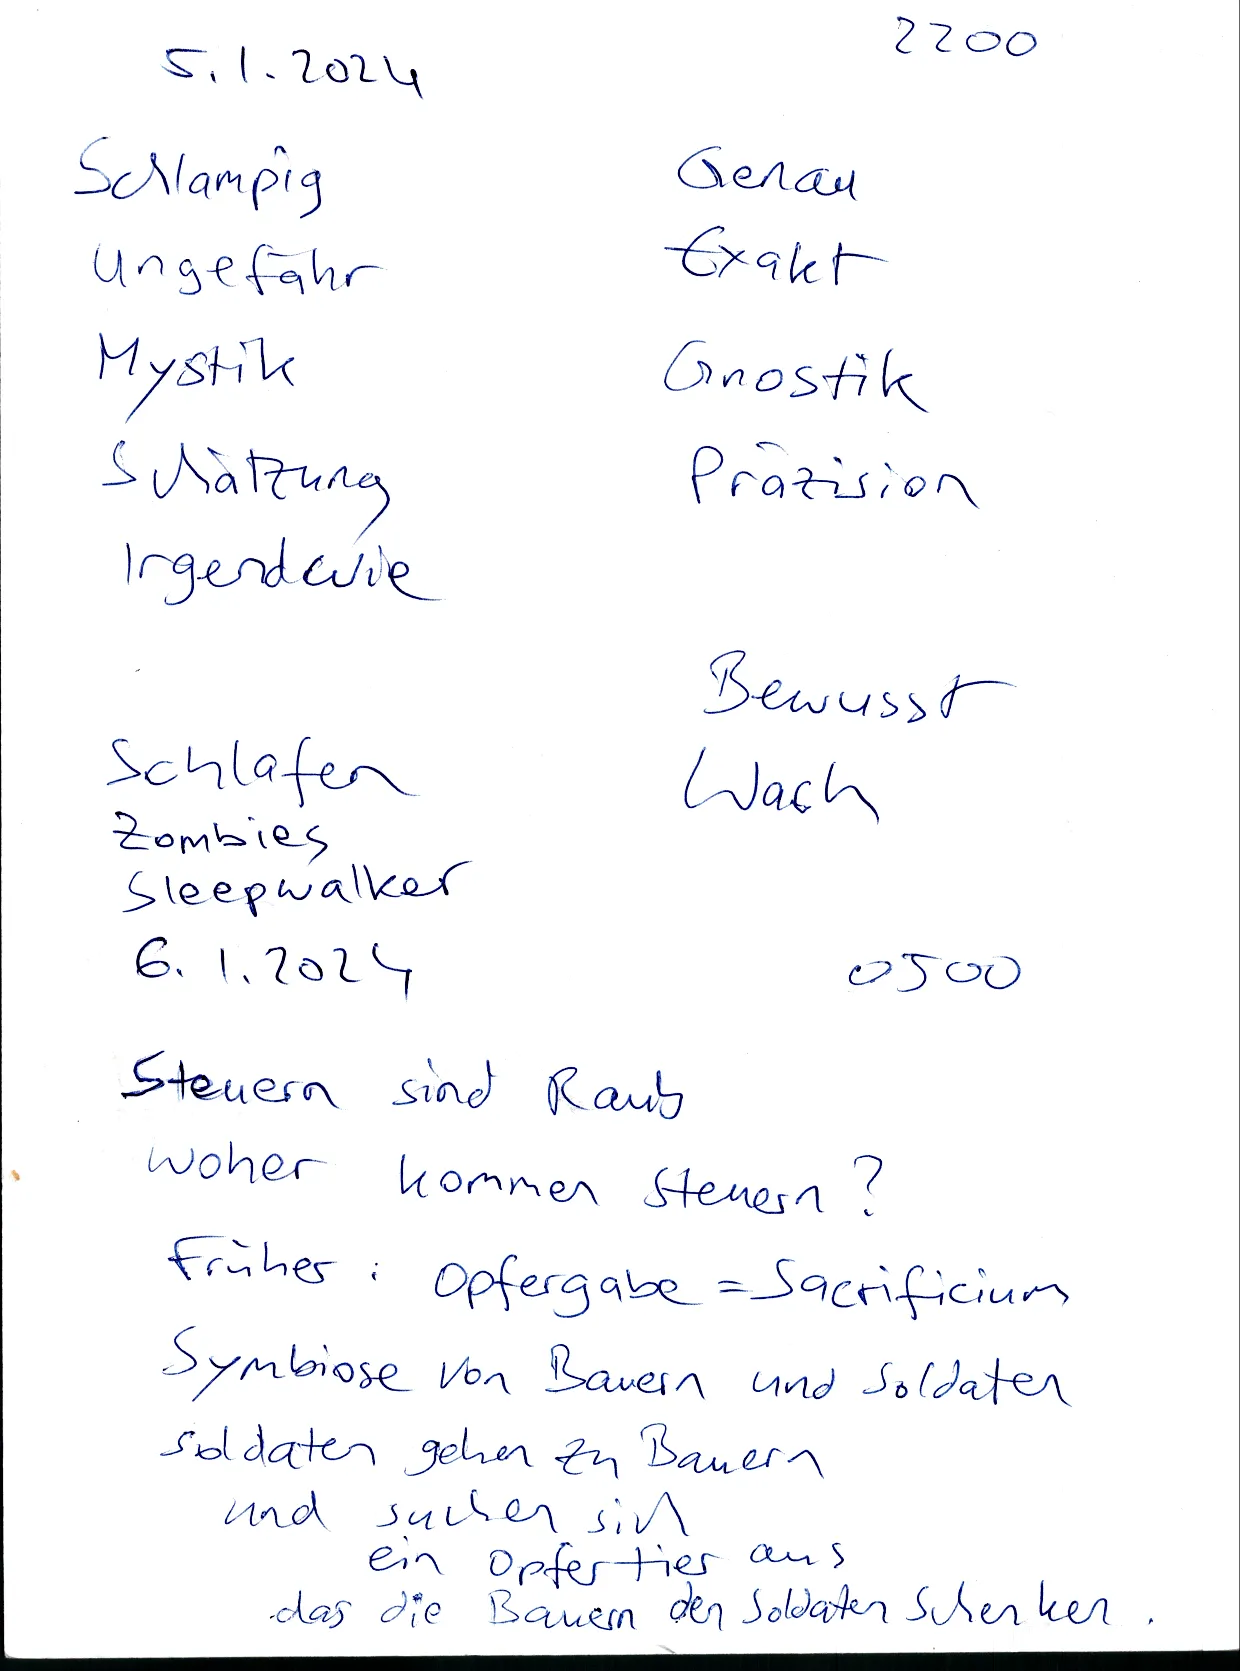 5.1.2024 2200
Schlampig Genau
Ungefähr Exakt
Mystik Gnostik
Schätzung Präzision
Irgendwie
Bewusst
Schlafen Wach
Zombies
Sleepwalker
6.1.2024 0500
Steuern sind Raub
woher kommen Steuern?
Früher: Opfergabe = Sacrificium
Symbiose von Bauern und Soldaten
Soldaten gehen zu Bauern
und suchen sich
ein Opfertier aus
das die Bauern den Soldaten schenken.